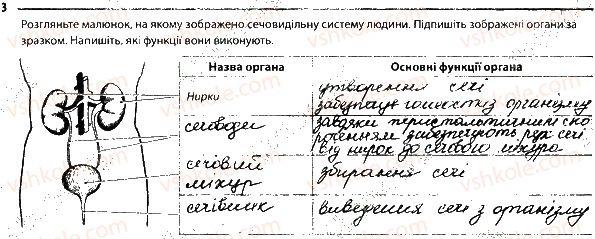 3
Розгляньте малюнок, на якому зображено сечовидільну систему людини. Підпишіть зображені органи за
зразком. Напишіть, які функції вони виконують.
Назва органа
Основні функції органа
Нирки
утворення сечі
організму
сечоводи
завдяки перистальтичним ско
роченням забезпечують рух сечі
від нирок до сечового міхура
сечовий
міхур
збирання сечі
сечівник
виведення сечі з організму